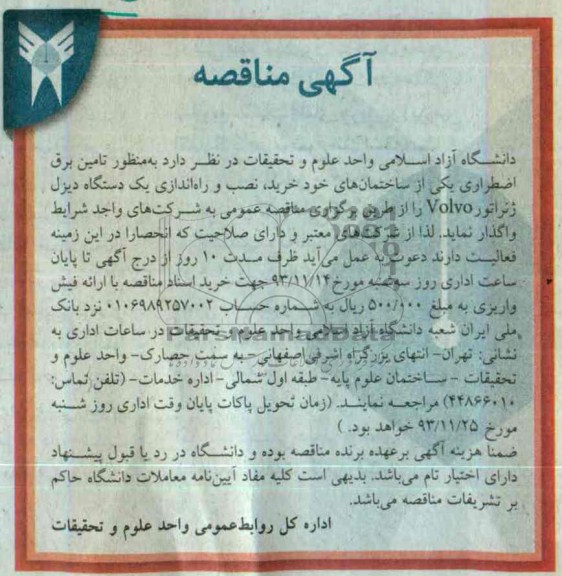 آگهی مناقصه
دانشگاه آزاد اسلامی واحد علوم و تحقیقات در نظر دارد به‌منظور تامین برق
اضطراری یکی از ساختمان‌های خود خرید، نصب و راه‌اندازی یک دستگاه دیزل
ژنراتور Volvo را از طریق برگزاری مناقصه عمومی به شرکت‌های واجد شرایط
واگذار نماید. لذا از شرکت‌های معتبر و دارای صلاحیت که انحصارا در این زمینه
فعالیت دارند دعوت به عمل می‌آید ظرف مدت ۱۰ روز از درج آگهی تا پایان
ساعت اداری روز سه‌شنبه مورخ ۹۳/۱۱/۱۴ جهت خرید اسناد مناقصه با ارائه فیش
واریزی به مبلغ ۵۰۰/۰۰۰ ریال به شماره حساب ۰۱۰۶۹۸۹۲۵۷۰۰۲ نزد بانک
ملی ایران شعبه دانشگاه آزاد اسلامی واحد علوم و تحقیقات در ساعات اداری به
نشانی: تهران- انتهای بزرگراه اشرفی‌اصفهانی- به سمت حصارک- واحد علوم و
تحقیقات - ساختمان علوم پایه- طبقه اول شمالی- اداره خدمات- (تلفن تماس:
۴۴۸۶۶۰۱۰) مراجعه نمایند. (زمان تحویل پاکات پایان وقت اداری روز شنبه
مورخ ۹۳/۱۱/۲۵ خواهد بود. )
ضمنا هزینه آگهی برعهده برنده مناقصه بوده و دانشگاه در رد یا قبول پیشنهاد
دارای اختیار تام می‌باشد. بدیهی است کلیه مفاد آیین‌نامه معاملات دانشگاه حاکم
بر تشریفات مناقصه می‌باشد.
اداره کل روابط‌عمومی واحد علوم و تحقیقات
ParsNamadData